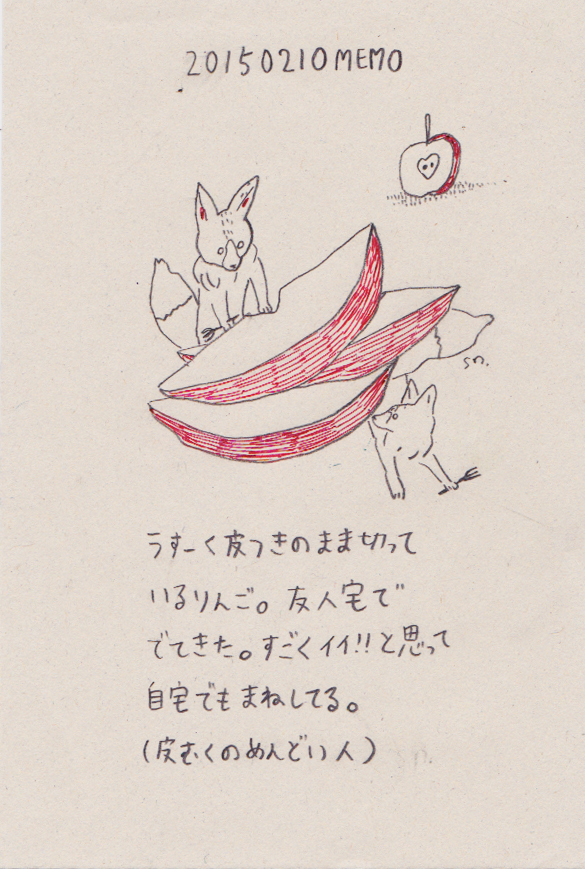 20150210MEMO
sn.
うすーく皮つきのまま切って
いるりんご。友人宅で
でてきた。すごくイイ!!と思って
自宅でもまねしてる。
(皮むくのめんどい人)